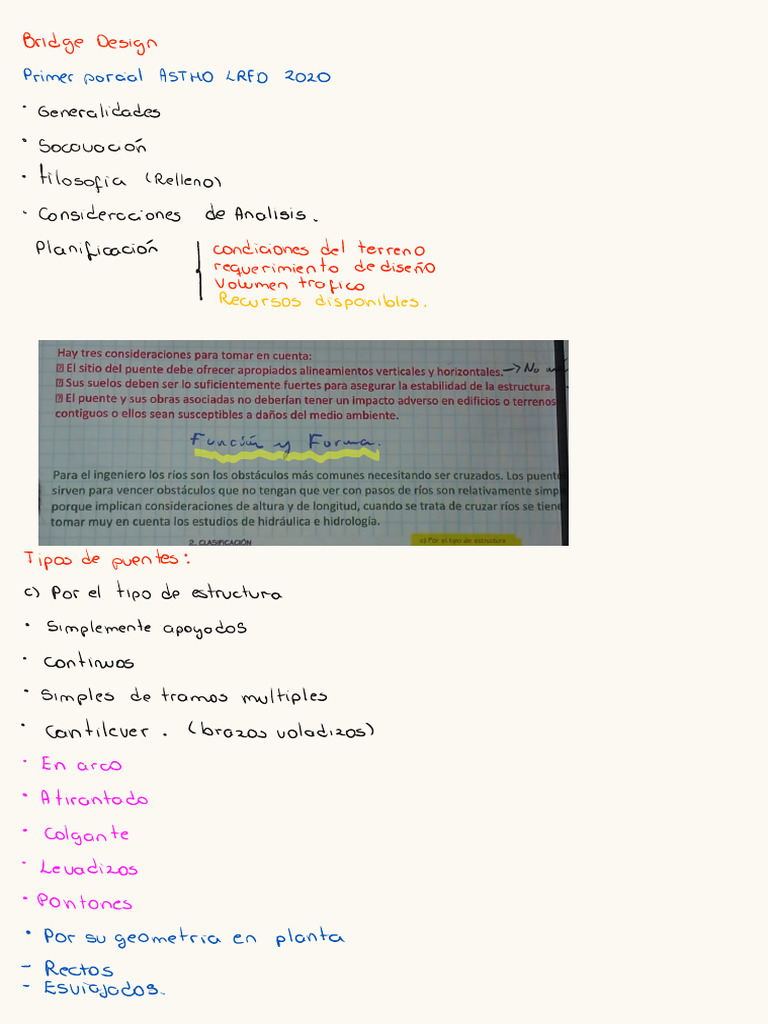 Bridge Design
Primer parcial ASTHO LRFD 2020
· Generalidades
· Socovación
· filosofia (Relleno)
· Consideraciones de Analisis.
Planificación
condiciones del terreno
requerimiento de diseño
Volumen trafico
Recursos disponibles.
Hay tres consideraciones para tomar en cuenta:
El sitio del puente debe ofrecer apropiados alineamientos verticales y horizontales. → No
Sus suelos deben ser lo suficientemente fuertes para asegurar la estabilidad de la estructura.
El puente y sus obras asociadas no deberían tener un impacto adverso en edificios o terrenos
contiguos o ellos sean susceptibles a daños del medio ambiente.
Función y Forma.
Para el ingeniero los ríos son los obstáculos más comunes necesitando ser cruzados. Los puent
sirven para vencer obstáculos que no tengan que ver con pasos de ríos son relativamente simp
porque implican consideraciones de altura y de longitud, cuando se trata de cruzar ríos se tien
tomar muy en cuenta los estudios de hidráulica e hidrología.
2. CLASIFICACIÓN
c) Por el tipo de estructura
Tipos de puentes:
c) Por el tipo de estructura
· Simplemente apoyados
· Continuos
· Simples de tramos multiples
· Cantilever. (brazos voladizos)
· En arco
· Atirantado
· Colgante
· Levadizos
· Pontones
· Por su geometria en planta
- Rectos
- Esviajados.